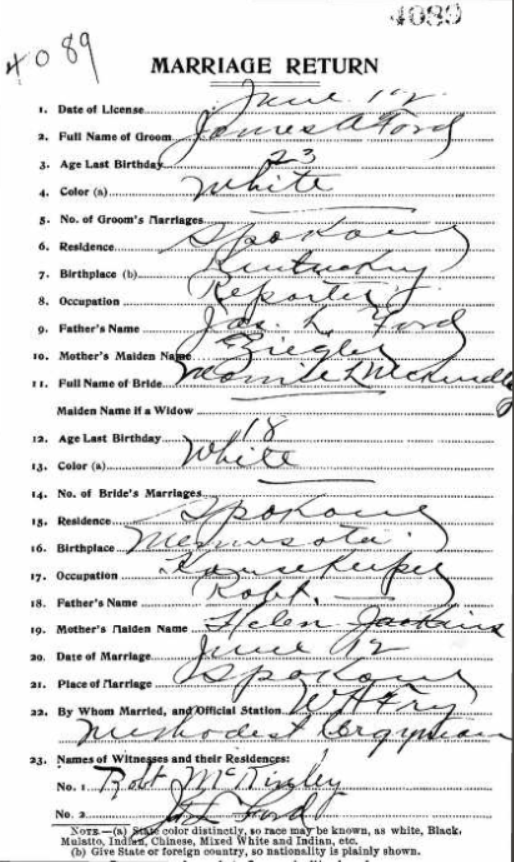 4089
4089
MARRIAGE RETURN
1. Date of License June 12
2. Full Name of Groom James A Ford
3. Age Last Birthday 23
4. Color (a) White
5. No. of Groom's Marriages
6. Residence Spokane
7. Birthplace (b) Kentucky
8. Occupation Reporter
9. Father's Name Jas. L. Ford
10. Mother's Maiden Name Ziegler
11. Full Name of Bride L McKinley
Maiden Name if a Widow
12. Age Last Birthday 18
13. Color (a) White
14. No. of Bride's Marriages
15. Residence Spokane
16. Birthplace Minnesota
17. Occupation Housekeeper
18. Father's Name Robt.
19. Mother's Maiden Name Helen Jackins
20. Date of Marriage June 12
21. Place of Marriage Spokane
22. By Whom Married, and Official Station W H Fry
Methodist Clergyman
23. Names of Witnesses and their Residences:
No. 1 Robt McKinley
No. 2 Ford
NOTE.—(a) State color distinctly, so race may be known, as white, Black,
Mulatto, Indian, Chinese, Mixed White and Indian, etc.
(b) Give State or foreign country, so nationality is plainly shown.